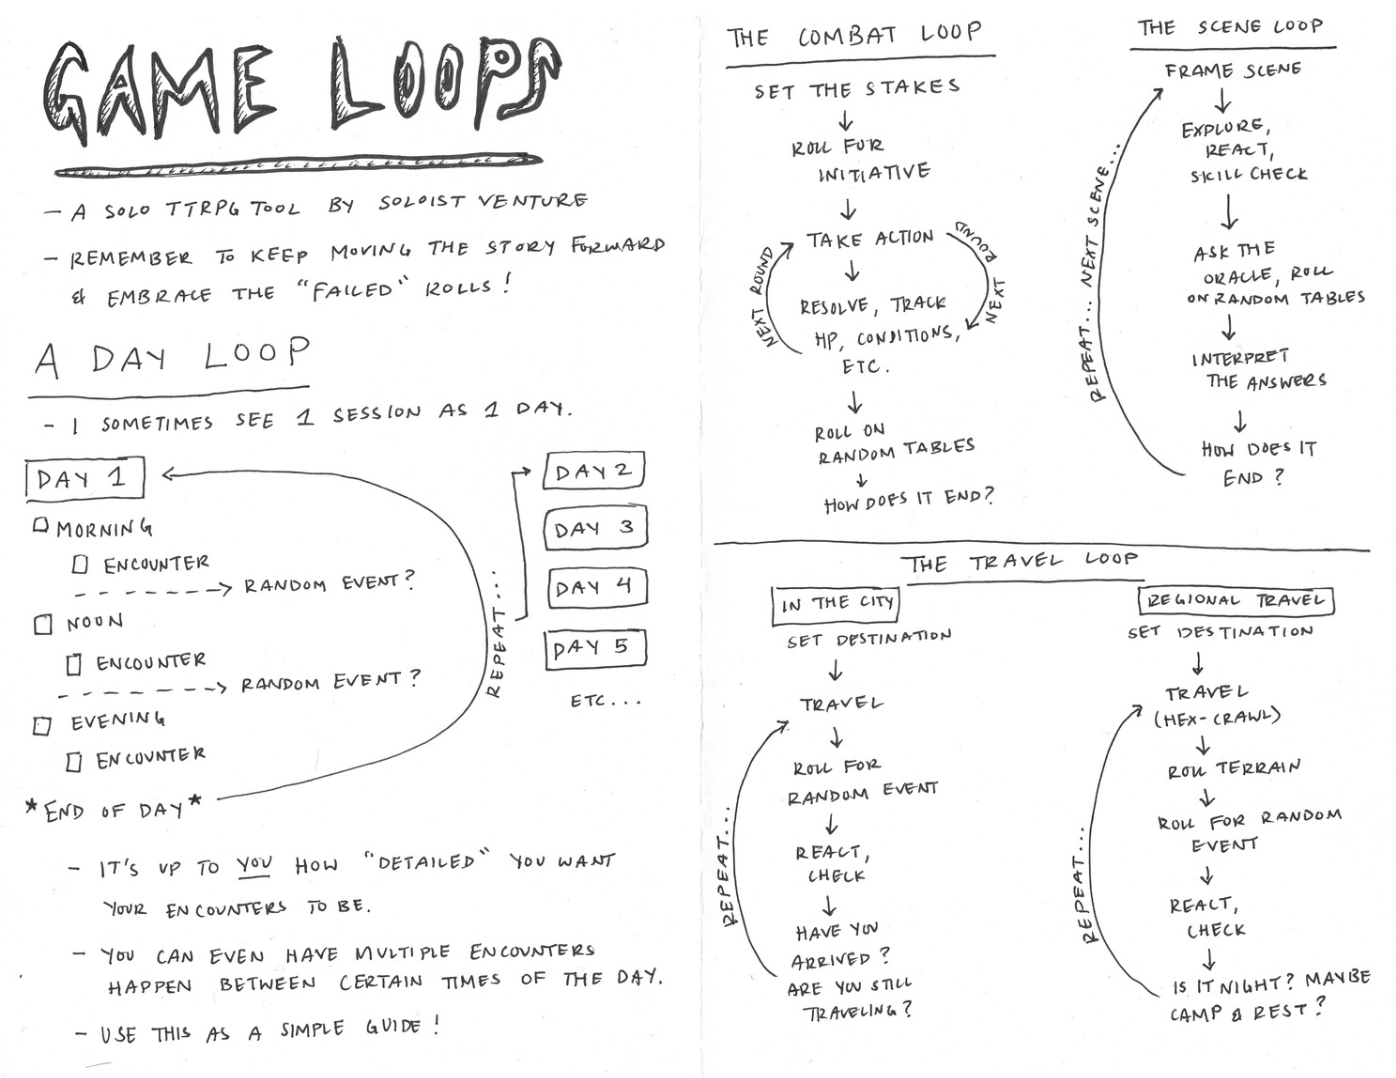 GAME LOOPS
- A SOLO TTRPG TOOL BY SOLOIST VENTURE
- REMEMBER TO KEEP MOVING THE STORY FORWARD
& EMBRACE THE "FAILED" ROLLS!
A DAY LOOP
- I SOMETIMES SEE 1 SESSION AS 1 DAY.
DAY 1
MORNING
ENCOUNTER
RANDOM EVENT?
NOON
ENCOUNTER
RANDOM EVENT?
EVENING
ENCOUNTER
*END OF DAY*
REPEAT...
DAY 2
DAY 3
DAY 4
DAY 5
ETC...
- IT'S UP TO YOU HOW "DETAILED" YOU WANT
YOUR ENCOUNTERS TO BE.
- YOU CAN EVEN HAVE MULTIPLE ENCOUNTERS
HAPPEN BETWEEN CERTAIN TIMES OF THE DAY.
- USE THIS AS A SIMPLE GUIDE!
THE COMBAT LOOP
SET THE STAKES
ROLL FOR
INITIATIVE
TAKE ACTION
NEXT ROUND
NEXT ROUND
RESOLVE, TRACK
HP, CONDITIONS,
ETC.
ROLL ON
RANDOM TABLES
HOW DOES IT END?
THE SCENE LOOP
FRAME SCENE
EXPLORE,
REACT,
SKILL CHECK
ASK THE
ORACLE, ROLL
ON RANDOM TABLES
INTERPRET
THE ANSWERS
HOW DOES IT
END?
REPEAT... NEXT SCENE...
THE TRAVEL LOOP
IN THE CITY
SET DESTINATION
TRAVEL
ROLL FOR
RANDOM EVENT
REACT,
CHECK
HAVE YOU
ARRIVED?
ARE YOU STILL
TRAVELING?
REPEAT...
REGIONAL TRAVEL
SET DESTINATION
TRAVEL
(HEX-CRAWL)
ROLL TERRAIN
ROLL FOR RANDOM
EVENT
REACT,
CHECK
IS IT NIGHT? MAYBE
CAMP & REST?
REPEAT...